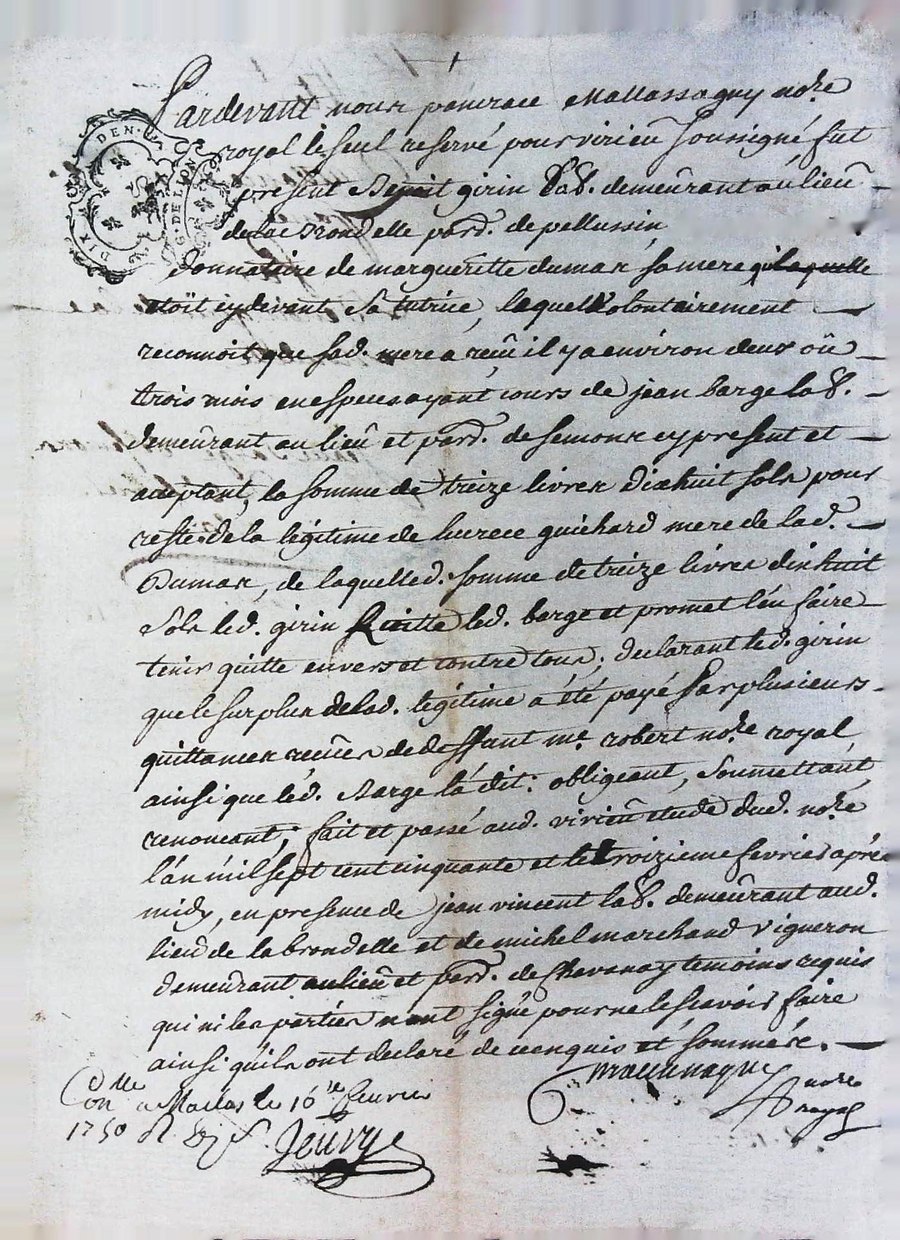 Pardevant nous pancrace Mallassagny no.re
royal le seul reservé pour virieu soussigné fut
present Benoit girin lab.r demeurant au lieu
de la Brondelle parr. de pellussin
donnataire de margueritte dumas sa mere
etoit cydevant sa tutrice, lequel volontairement
reconnoit que sad. mere a reçû il y a environ deux où
trois mois en especes ayant cours de jean barge lab.r
demeurant au lieu et parr. de semons cy present et
aceptant, la somme de treize livres dixhuit sols pour
reste de la légitime de lucrece guichard mere de lad.
Dumas, de laquelle d. somme de treize livres dixhuit
sols led. girin Quitte led. barge et promet l'en faire
tenir quitte envers et contre tous; declarant led. girin
que le surplus de lad. légitime a été payé par plusieurs
quittances reçües de deffunt me. robert no.re royal
ainsi que led. Barge l'a dit: obligeant, soumettant,
renonceant; fait et passé aud. virieu etude dud. no.re
l'an mil sept cent cinquante et le troizieme fevrier après
midy, en presence de jean vincent lab.r demeurant aud.
lieu de la brondelle et de michel marchand vigneron
demeurant au lieu et parr. de Chevanay temoins requis
qui ni les parties n'ont signé pour ne le scavoir faire
ainsi qu'ils ont declaré de ce enquis et sommés.
Mallassagny
no.re
royal
Con.lle a Mallas le 16.e fevrier
1750
Jeurye
DIX DEN.
G. DE LION